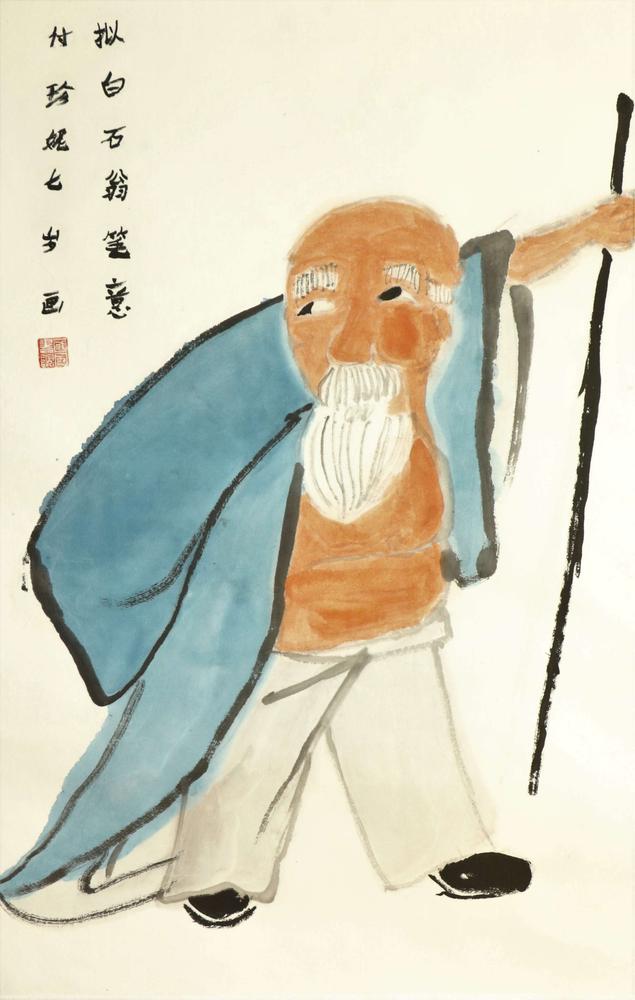 拟白石翁笔意
付珍妮七岁画